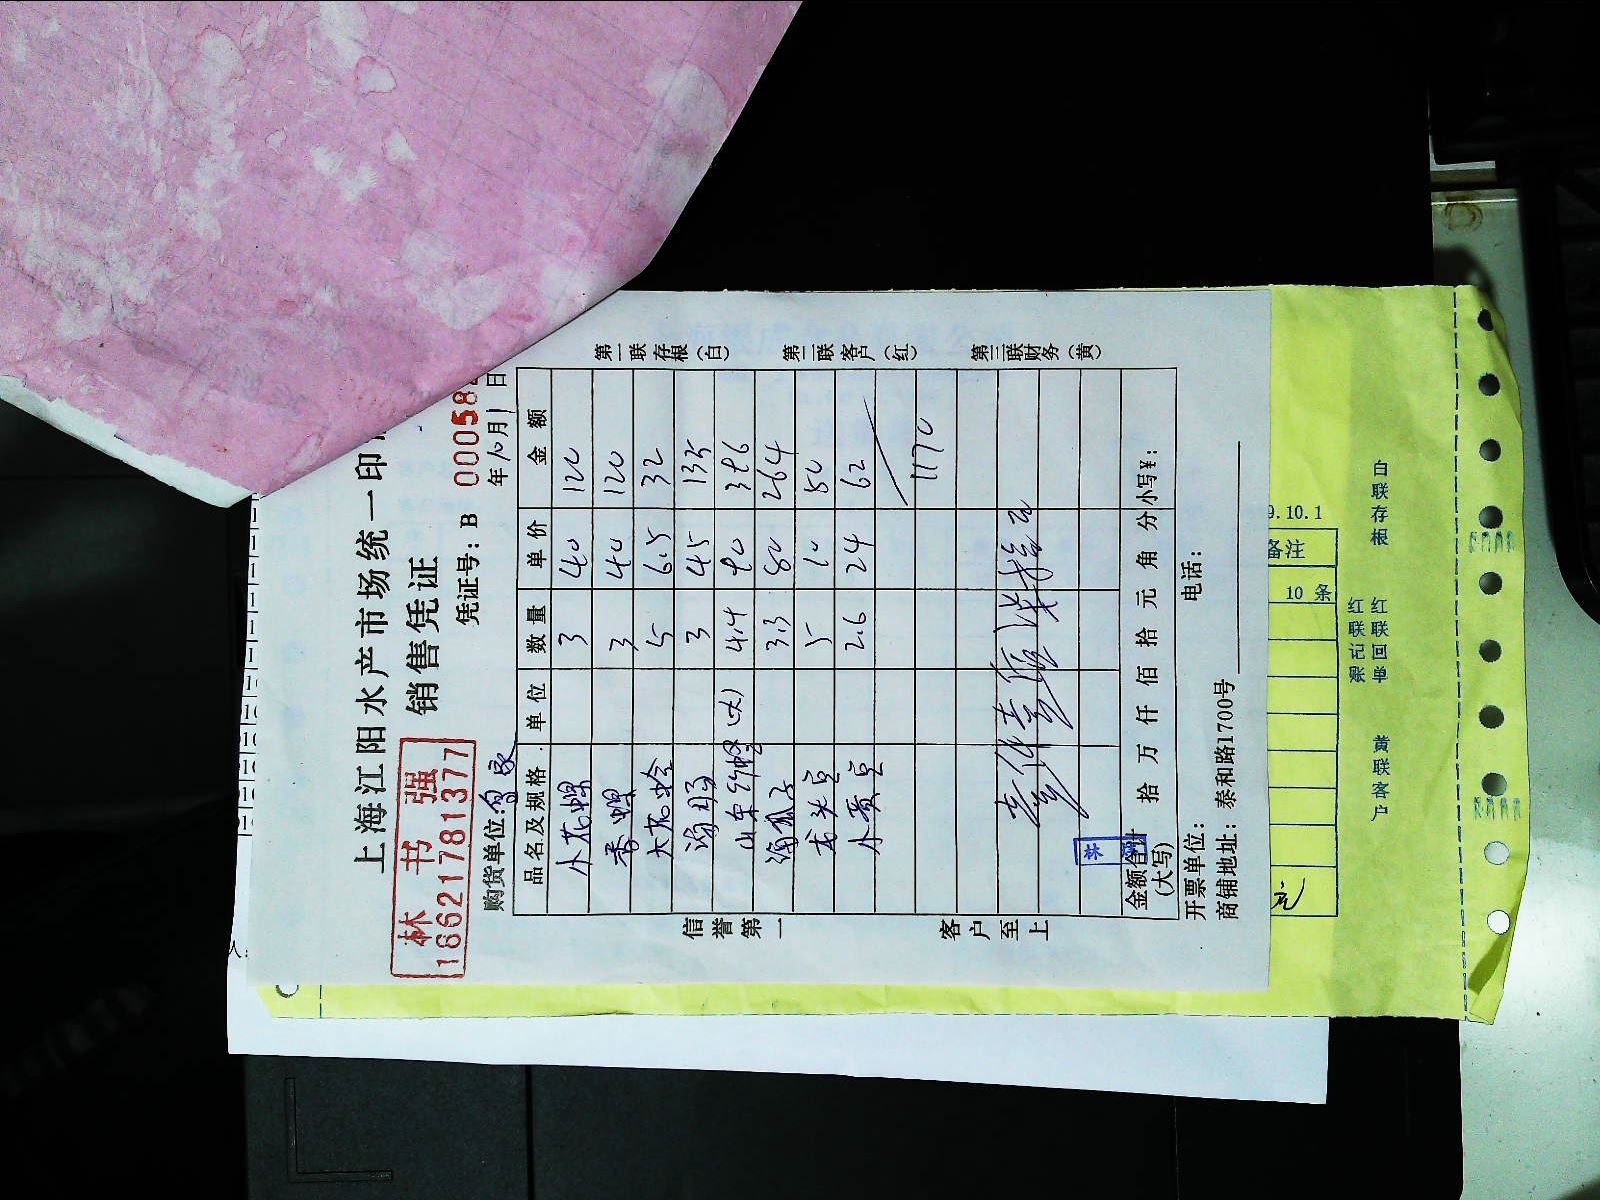 上海江阳水产市场统一印
销售凭证
林书强
16621781377
凭证号: B 00058
购货单位: 鲁家
年10月1日
品名及规格 单位 数量 单价 金额
小花螺 3 40 120
香螺 3 40 120
大花蛤 5 6.5 32
海肠 3 45 135
4.4 90 396
海瓜子 3.3 80 264
龙头豆 5 10 50
小黄豆 2.6 24 62
1170
金额合计 (大写) 拾 万 仟 佰 拾 元 角 分 小写¥:
开票单位: 电话:
商铺地址: 泰和路1700号
信誉第一
客户至上
第一联存根(白)
第二联客户(红)
第三联财务(黄)
9.10.1
备注
10 条
白联存根
红联回单
红联记账
黄联客户